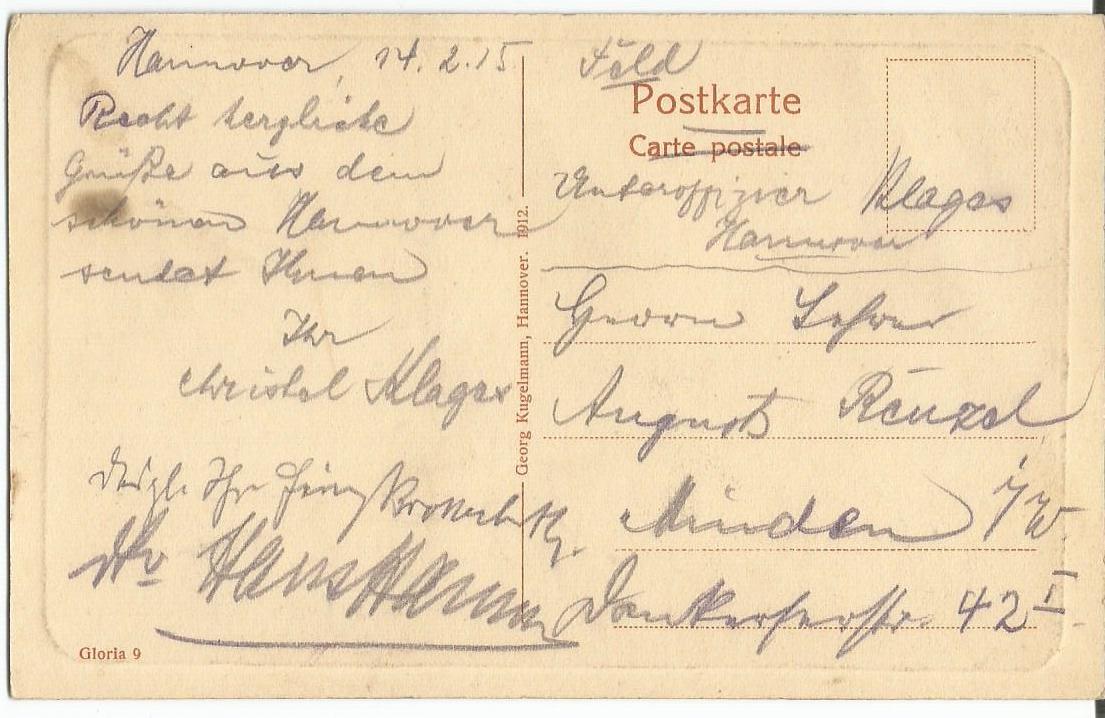 Hannover, 14.2.15
Recht herzliche
Grüße aus dem
schönen Hannover
sendet Ihnen
Ihr
Christel Klages
Desgl. Ihr
Ihr Hans Hamm
Gloria 9
Georg Kugelmann, Hannover. 1912.
Feld
Postkarte
Carte postale
Unteroffizier Klages
Hannover
Herrn Lehrer
August Renzel
Minden i/W.
Dankerserstr. 42 I